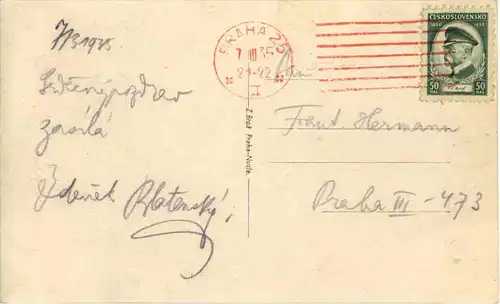 7/3 1935
Srdečný pozdrav
zasílá
Zdeněk Platenský.
PRAHA 25
7 III 35
21-22
* I *
ČESKOSLOVENSKO
1850 1935
50 HAL 50 HAL
Z. Brož Praha-Nusle.
Pan
Frant. Hermann
Praha III - 473